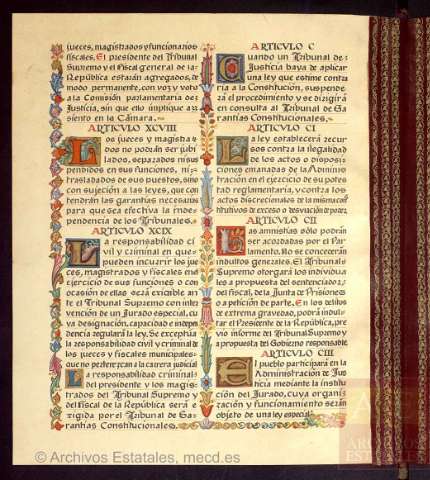 jueces, magistrados y funcionarios
fiscales. El presidente del Tribunal
Supremo y el Fiscal general de la
República estarán agregados, de
modo permanente, con voz y voto
a la Comisión parlamentaria de
Justicia, sin que ello implique a-
siento en la Cámara.
ARTICVLO XCVIII
Los jueces y magistra-
dos no podrán ser jubi-
lados, separados ni sus-
pendidos en sus funciones, ni
trasladados de sus puestos, sino
con sujeción a las leyes, que con-
tendrán las garantías necesarias
para que sea efectiva la inde-
pendencia de los Tribunales.
ARTICVLO XCIX
La responsabilidad ci-
vil y criminal en que
pueden incurrir los jue-
ces, magistrados y fiscales en el
ejercicio de sus funciones o con
ocasión de ellas será exigible an-
te el Tribunal Supremo con inter-
vención de un Jurado especial, cu-
ya designación, capacidad e indepen-
dencia regulará la ley. Se exceptúa
la responsabilidad civil y criminal de
los jueces y fiscales municipales
que no pertenezcan a la carrera judicial.
La responsabilidad criminal
del presidente y los magis-
trados del Tribunal Supremo y
del fiscal de la República será e-
xigida por el Tribunal de Ga-
rantías Constitucionales.
ARTICVLO C
Cuando un Tribunal de
Justicia haya de aplicar
una ley que estime contra-
ria a la Constitución, suspende-
rá el procedimiento y se dirigirá
en consulta al Tribunal de Ga-
rantías Constitucionales.
ARTICVLO CI
La ley establecerá recur-
sos contra la ilegalidad
de los actos o disposi-
ciones emanadas de la Adminis-
tración en el ejercicio de su potes-
tad reglamentaria, y contra los
actos discrecionales de la misma cons-
titutivos de exceso o desviación de poder.
ARTICVLO CII
Las amnistías sólo podrán
ser acordadas por el Par-
lamento. No se concederán
indultos generales. El Tribunal
Supremo otorgará los individua-
les a propuesta del sentenciador,
del fiscal, de la Junta de Prisiones
o a petición de parte. En los delitos
de extrema gravedad, podrá indul-
tar el Presidente de la República, pre-
vio informe del Tribunal Supremo y
a propuesta del Gobierno responsable.
ARTICVLO CIII
El pueblo participará en la
Administración de Jus-
ticia mediante la institu-
ción del Jurado, cuya organi-
zación y funcionamiento serán
objeto de una ley especial.
© Archivos Estatales, mecd.es
ARCHIVOS
ESTATALES